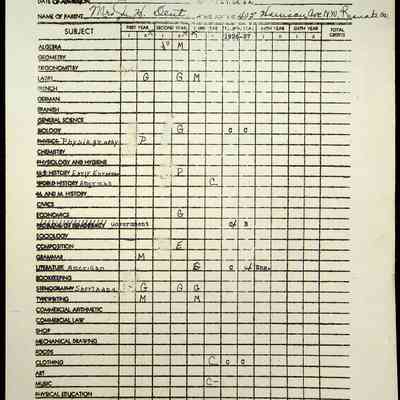 DATE OF ADMISSION
NAME OF PARENT Mrs. L. H. Dent ADDRESS 1402 Harrison Ave N.W. Roanoke
SUBJECT FIRST YEAR SECOND YEAR THIRD YEAR FIFTH YEAR SIXTH YEAR TOTAL CREDITS
1926-27
ALGEBRA M
GEOMETRY
TRIGONOMETRY
LATIN G G M
FRENCH
GERMAN
SPANISH
GENERAL SCIENCE
BIOLOGY G C C
PHYSICS Physiography P
CHEMISTRY
PHYSIOLOGY AND HYGIENE
U.S. HISTORY Early European P
WORLD HISTORY C
VA. AND M. HISTORY
CIVICS
ECONOMICS G
PROBLEMS OF DEMOCRACY Government B
SOCIOLOGY
COMPOSITION E
GRAMMAR M
LITERATURE American G C
BOOKKEEPING
STENOGRAPHY Shorthand G G G
TYPEWRITING M M
COMMERCIAL ARITHMETIC
COMMERCIAL LAW
SHOP
MECHANICAL DRAWING
FOODS
CLOTHING C C C
ART
MUSIC C-
PHYSICAL EDUCATION